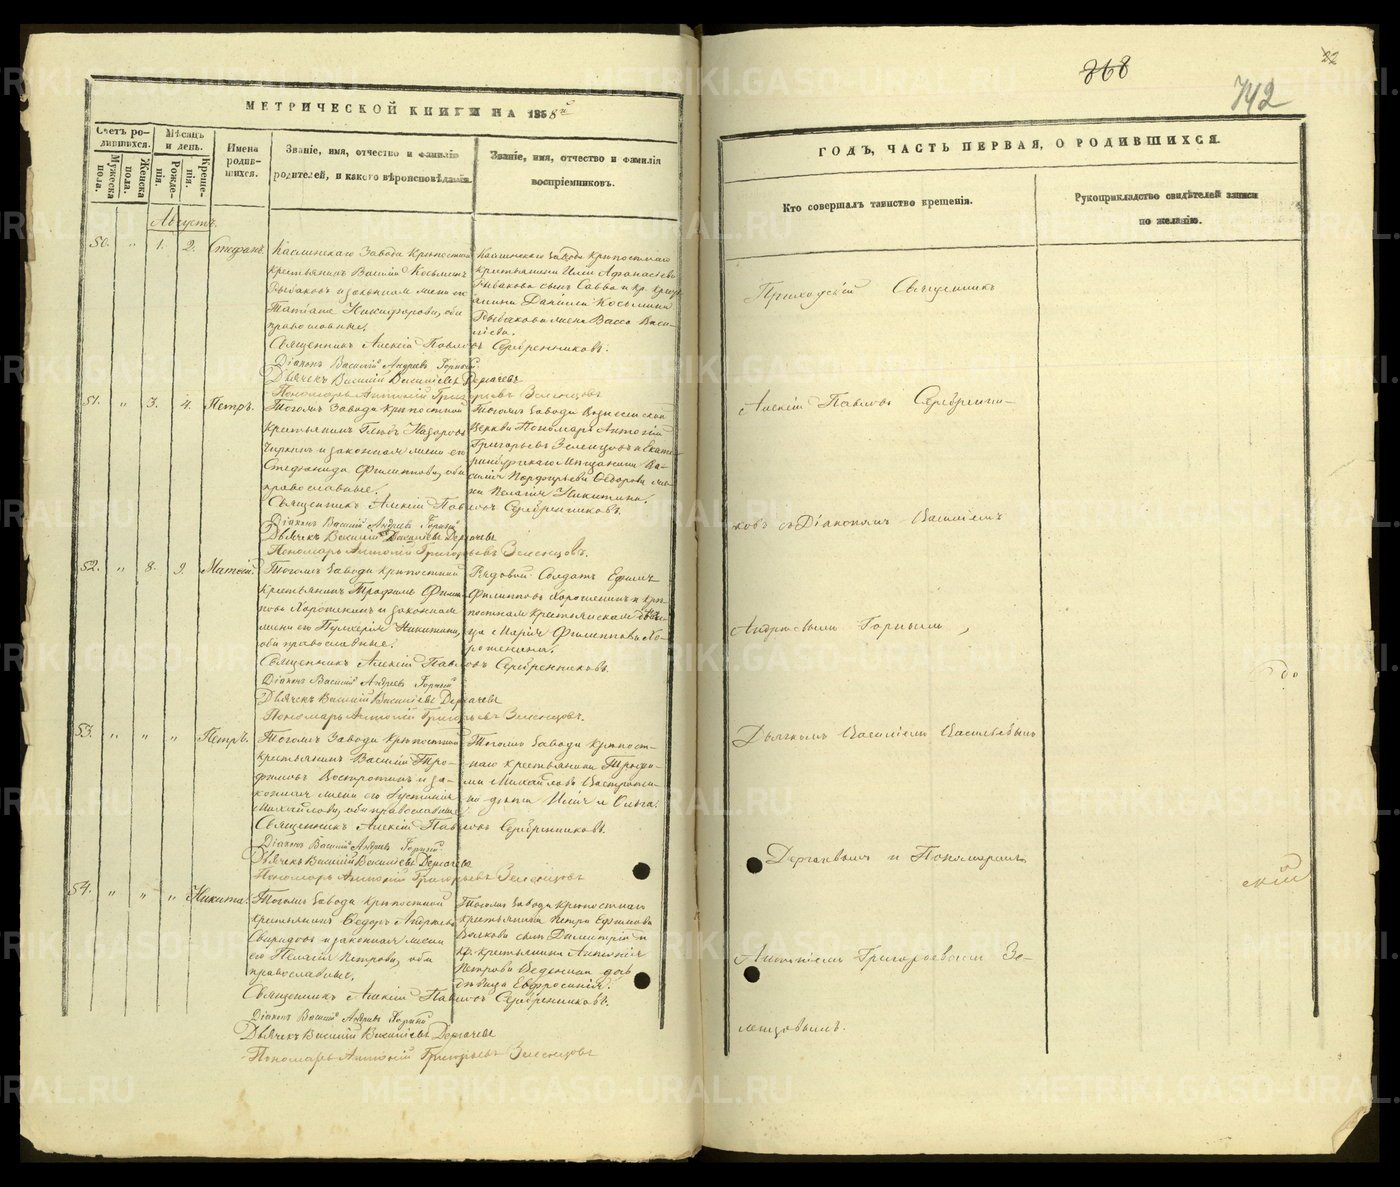 МЕТРИЧЕСКОЙ КНИГИ НА 1858й
Счетъ родившихся.
Мужеска пола.
Женска пола.
Мѣсяцъ и день.
Рожденія.
Крещенія.
Имена родившихся.
Званіе, имя, отчество и фамилія
родителей, и какого вѣроисповѣданія.
Званіе, имя, отчество и фамилія
воспріемниковъ.
Августъ.
50. " 1. 2. Стефанъ.
Каслинскаго Завода Крѣпостной
крестьянинъ Василій Косьминъ
Рыбаковъ и законная жена его
Татіана Никифорова, оба
православные.
Каслинскаго Завода крѣпостнаго
крестьянина Иліи Афанасьева
Рыбакова сынъ Савва и кр. крестьянина Даніила Косьмина
Рыбакова жена Васса Васильева.
Священникъ Алексій Павловъ Серебренниковъ.
Діаконъ Василій Андреевъ Горный
Дьячекъ Василій Васильевъ Дергачевъ
Пономарь Антоній Григорьевъ Зеленцовъ
51. " 3. 4. Петръ.
Тогожъ Завода крѣпостной
крестьянинъ Глѣбъ Назаровъ
и законная жена его
Стефанида Филиппова, оба
православные.
Тогожъ Завода Вознесенской
Церкви Пономарь Антоній
Григорьевъ Зеленцовъ и Екатеринбургскаго Мѣщанина Василія Порфирьева Ѳедорова жена Пелагія Никитина.
Священникъ Алексій Павловъ Серебренниковъ.
Діаконъ Василій Андреевъ Горный
Дьячекъ Василій Васильевъ Дергачевъ
Пономарь Антоній Григорьевъ Зеленцовъ.
52. " 8. 9. Матѳій.
Тогожъ Завода крѣпостной
крестьянинъ Трофимъ Филиповъ Хорошенинъ и законная
жена его Пулхерія Никитина,
оба православные.
Рядовой Солдатъ Ефимъ
Филипповъ Хорошенинъ и крѣпостная крестьянская дѣвица Марія Филиппова Хорошенина.
Священникъ Алексій Павловъ Серебренниковъ.
Діаконъ Василій Андреевъ Горный
Дьячекъ Василій Васильевъ Дергачевъ
Пономарь Антоній Григорьевъ Зеленцовъ.
53. " " " Петръ.
Тогожъ Завода крѣпостной
крестьянинъ Василій Трофимовъ Востротинъ и законная жена его Іустинія
Михайлова, оба православные
Тогожъ Завода крѣпостнаго крестьянина Трофима Михайлова Востротина дѣти Илія и Ольга.
Священникъ Алексій Павловъ Серебренниковъ.
Діаконъ Василій Андреевъ Горный
Дьячекъ Василій Васильевъ Дергачевъ
Пономарь Антоній Григорьевъ Зеленцовъ
54. " " " Никита.
Тогожъ Завода крѣпостной
крестьянинъ Ѳедоръ Андреевъ
Свиридовъ и законная жена
его Пелагія Петрова, оба
православные.
Тогожъ Завода Крѣпостнаго
крестьянина Петра Ефимова
Волкова сынъ Димитрій и
кр. крестьянина Антонія
Петрова Веденина дѣвица Евфросинія.
Священникъ Алексій Павловъ Серебренниковъ.
Діаконъ Василій Андреевъ Горный
Дьячекъ Василій Васильевъ Дергачевъ
Пономарь Антоній Григорьевъ Зеленцовъ
868
742
ГОДЪ, ЧАСТЬ ПЕРВАЯ, О РОДИВШИХСЯ.
Кто совершалъ таинство крещенія.
Рукоприкладство свидѣтелей записи
по желанію.
Приходскій Священникъ
Алексій Павловъ Серебренни-
ковъ съ Діакономъ Василіемъ
Андреевымъ Горнымъ,
Дьячкомъ Василіемъ Васильевымъ
Дергачевымъ и Пономаремъ
Антоніемъ Григорьевымъ Зе-
ленцовымъ.
до
скій
METRIKI.GASO-URAL.RU